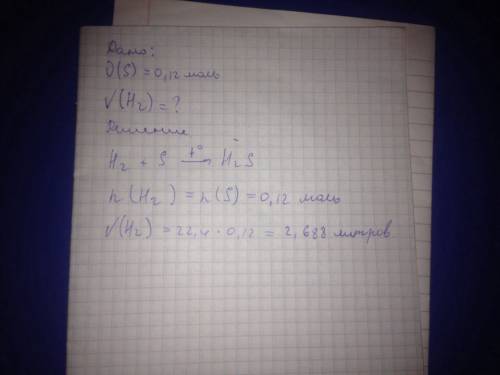 Дано:
υ(S) = 0,12 моль
V(H₂) = ?
Решение
H₂ + S —t°→ H₂S
n(H₂) = n(S) = 0,12 моль
V(H₂) = 22,4 · 0,12 = 2,688 литров